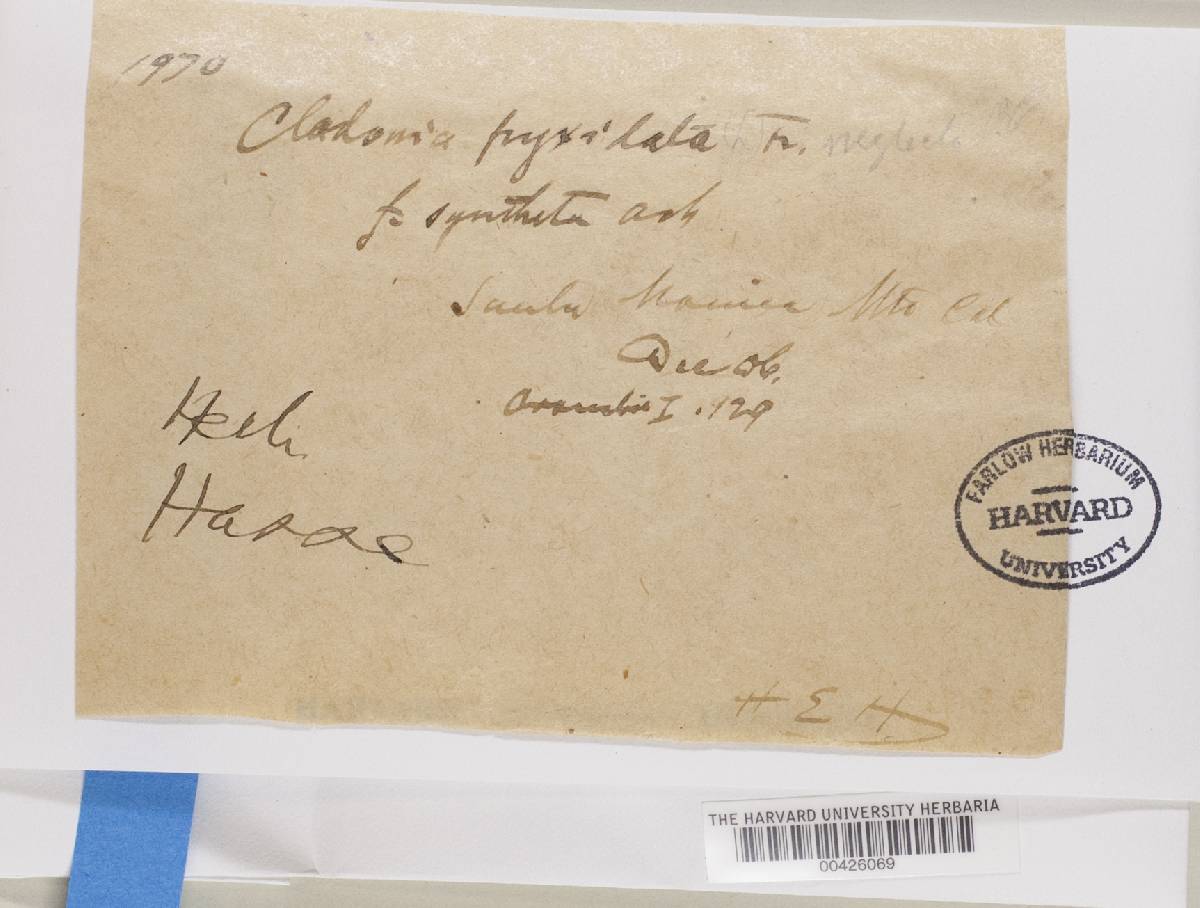 1970
Cladonia pyxidata (L) Fr. neglecta
f. syntheta Ach
Santa Monica Mts Cal
Herb.
Hasse
H E H
FARLOW HERBARIUM
HARVARD
UNIVERSITY
THE HARVARD UNIVERSITY HERBARIA
00426069